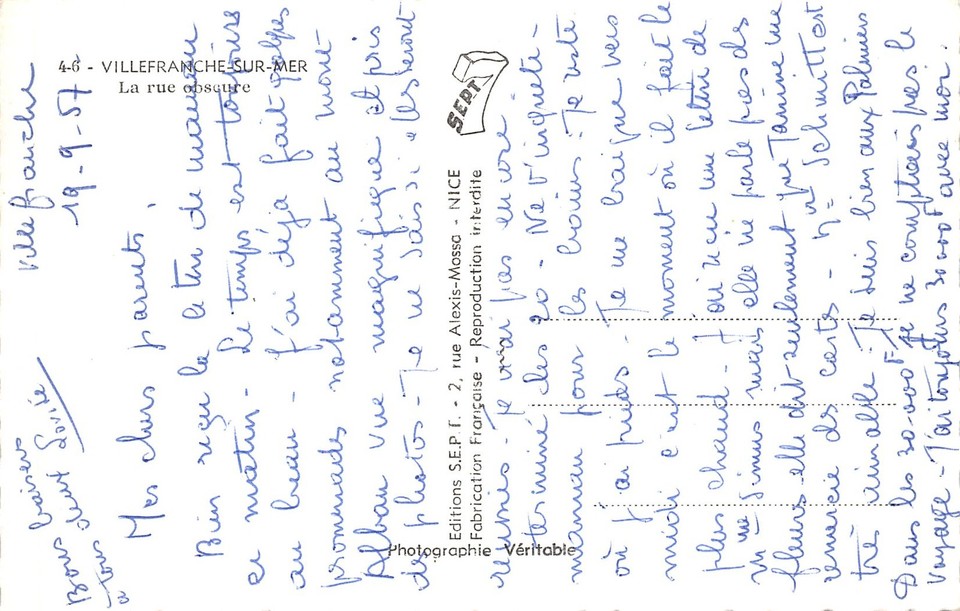 46 - VILLEFRANCHE-SUR-MER
La rue obscure
Villefranche
19-9-57
Mes chers parents,
Bien reçu la lettre de maman
ce matin - Le temps est toujours
au beau - J'ai déjà fait quelques
promenades notamment au mont-
Alban vue magnifique et pris
des photos - Je ne sais si elles seront
réussies - je n'ai pas encore
terminé les 20 - Ne t'inquiète
maman pour les bains. Je reste
où j'ai pieds - Je ne baigne vers
midi c'est le moment où il fait le
plus chaud - J'ai reçu une lettre de
Mme Simus mais elle ne parle pas des
fleurs elle dit seulement que Janine me
remercie des cartes - Mr Schmitt est
très aimable - Je suis bien aux Palmiers
Dans les 30.000F je ne comptais pas le
voyage - J'ai toujours 30.000F avec moi.
Bons baisers
à tous deux
SEPT
Editions S.E.P.T. - 2, rue Alexis-Mossa - NICE
Fabrication Française - Reproduction interdite
Photographie Véritable